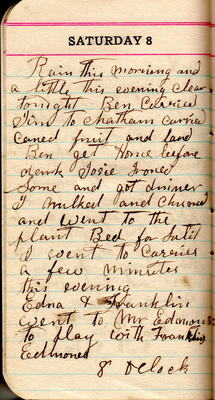 SATURDAY 8
Rain this morning and
a little this evening clear
tonight Ben Carried
Jim to Chatham carried
caned fruit and land
Ben get Home before
Josie Ironed
Some and got dinner
I mulked and Churned
and went to the
plant Bed for
I went to Carries
a few minutes
this evening
Edna & Franklin
went to Mr Edmons
to play with Franklin
Eedmones
8 Oclock